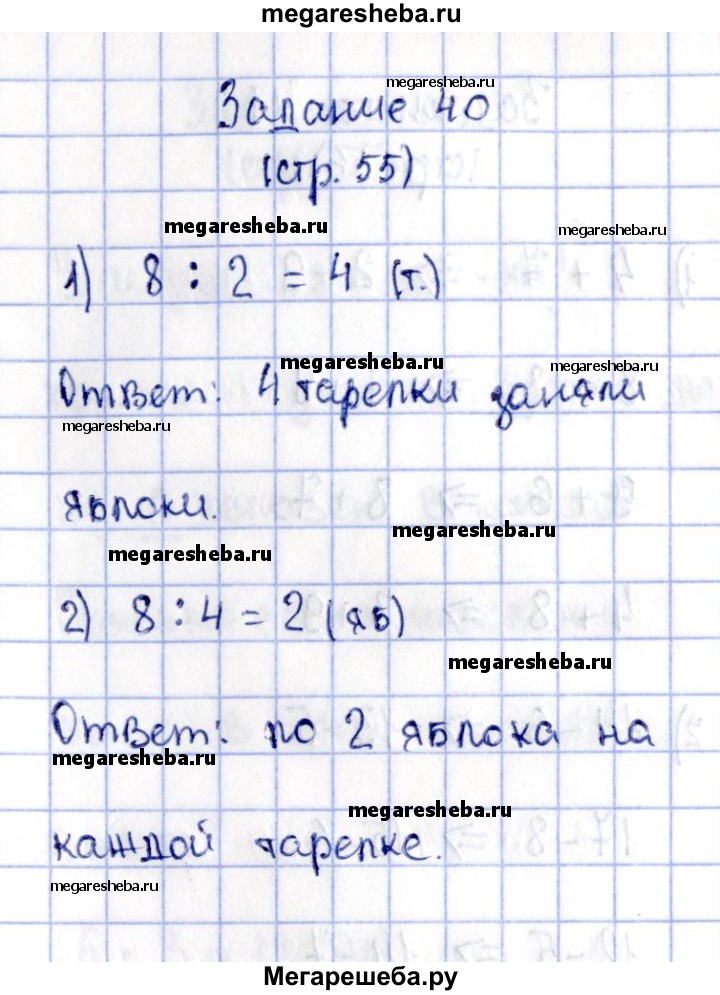 megaresheba.ru
megaresheba.ru
Задание 40
(стр. 55)
megaresheba.ru
megaresheba.ru
1) 8 : 2 = 4 (т.)
megaresheba.ru
megaresheba.ru
Ответ: 4 тарелки заняли
megaresheba.ru
яблоки.
megaresheba.ru
megaresheba.ru
2) 8 : 4 = 2 (яб)
megaresheba.ru
Ответ: по 2 яблока на
megaresheba.ru
megaresheba.ru
каждой тарелке.
megaresheba.ru
Мегарешеба.ру